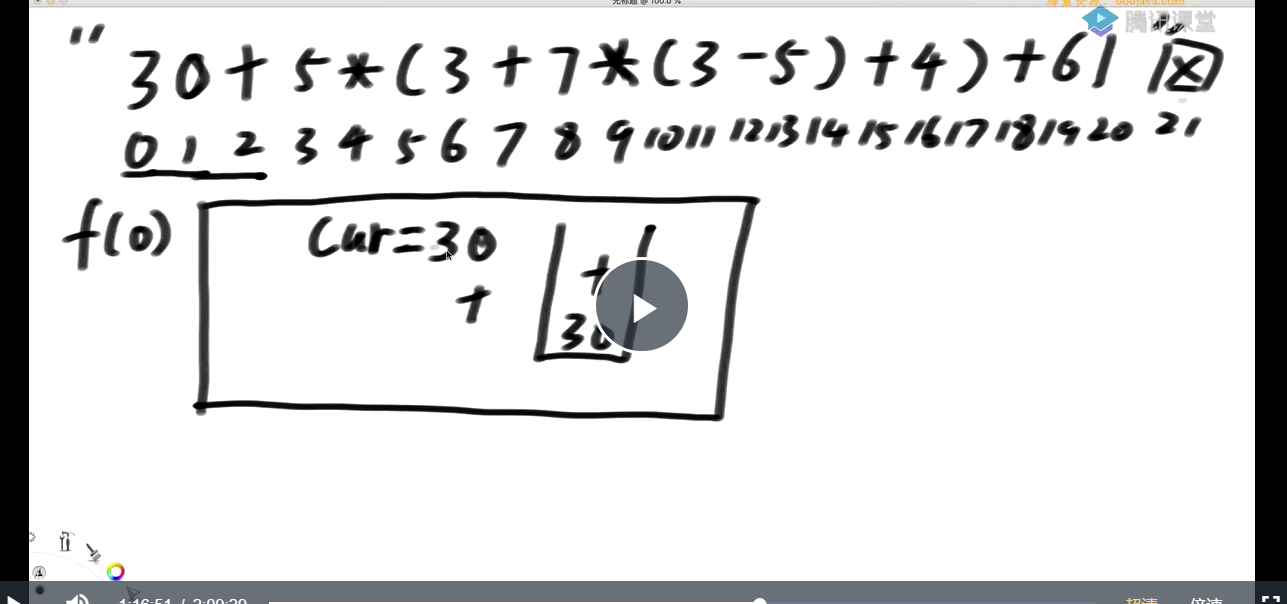 无标题 @ 100.0 %
oo0java.com
腾讯课堂
" 30+5*(3+7*(3-5)+4)+61 "
0 1 2 3 4 5 6 7 8 9 10 11 12 13 14 15 16 17 18 19 20 21
f(0)
Cur=30
+
+
30
1:16:51 / 2:00:20
超清
倍速